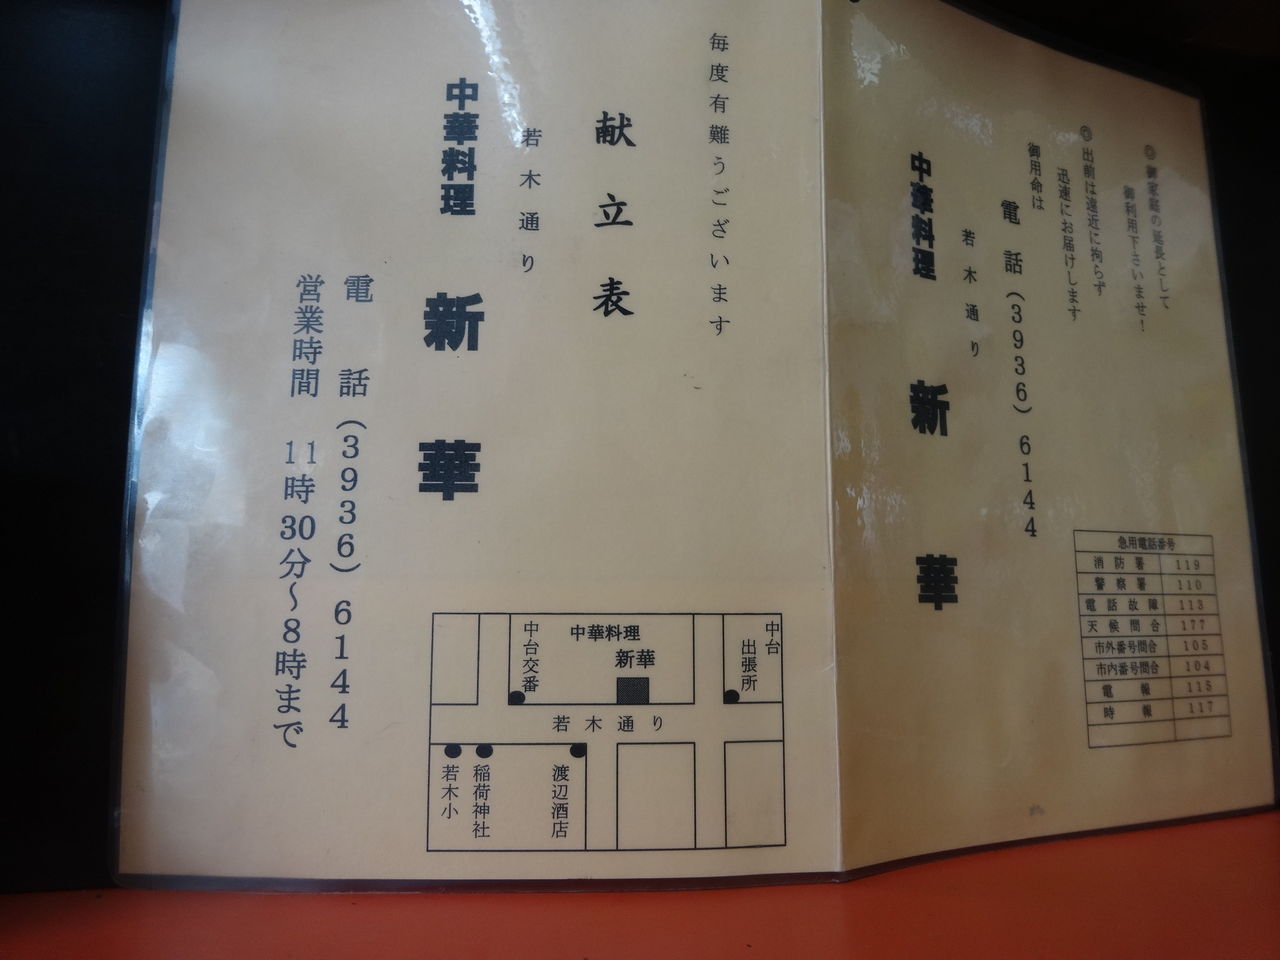 ◎御家庭の延長として
御利用下さいませ!
◎出前は遠近に拘らず
迅速にお届けします
御用命は
電話(3936)6144
若木通り
中華料理 新華
急用電話番号
消防署 119
警察署 110
電話故障 113
天候問合 177
市外番号問合 105
市内番号問合 104
電報 115
時報 117
毎度有難うございます
献立表
若木通り
中華料理 新華
電話(3936)6144
営業時間 11時30分~8時まで
中台
出張所
中華料理
新華
中台交番
若木通り
渡辺酒店
稲荷神社
若木小